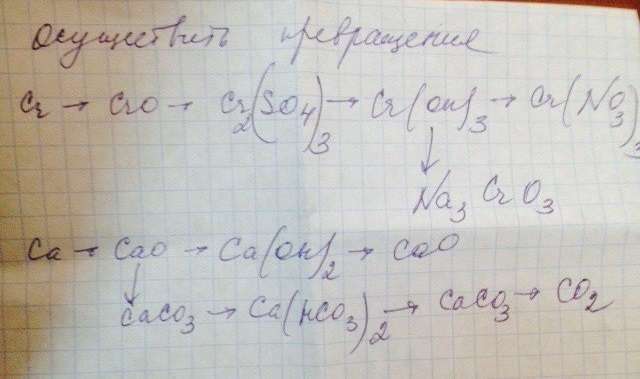 осуществить превращения
Cr → CrO → Cr₂(SO₄)₃ → Cr(OH)₃ → Cr(NO₃)₃
↓
Na₃CrO₃
Ca → CaO → Ca(OH)₂ → CaO
↓
CaCO₃ → Ca(HCO₃)₂ → CaCO₃ → CO₂